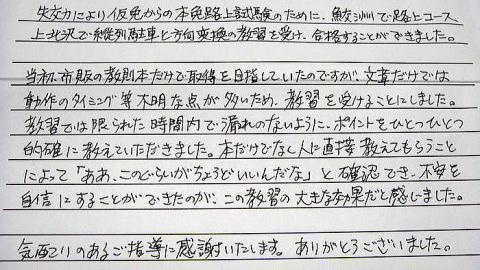 失効により仮免からの本免路上試験のために、鮫洲で路上コース、
上北沢で縦列駐車と方向変換の教習を受け、合格することができました。
当初市販の教則本だけで取得を目指していたのですが、文章だけでは
動作のタイミング等不明な点が多いため、教習を受けることにしました。
教習では限られた時間内で漏れのないように、ポイントをひとつひとつ
的確に教えていただきました。本だけでなく人に直接教えてもらうこと
によって「ああ、このぐらいがちょうどいいんだな」と確認でき、不安を
自信にすることができたのが、この教習の大きな効果だと感じました。
気配りのあるご指導に感謝いたします。ありがとうございました。